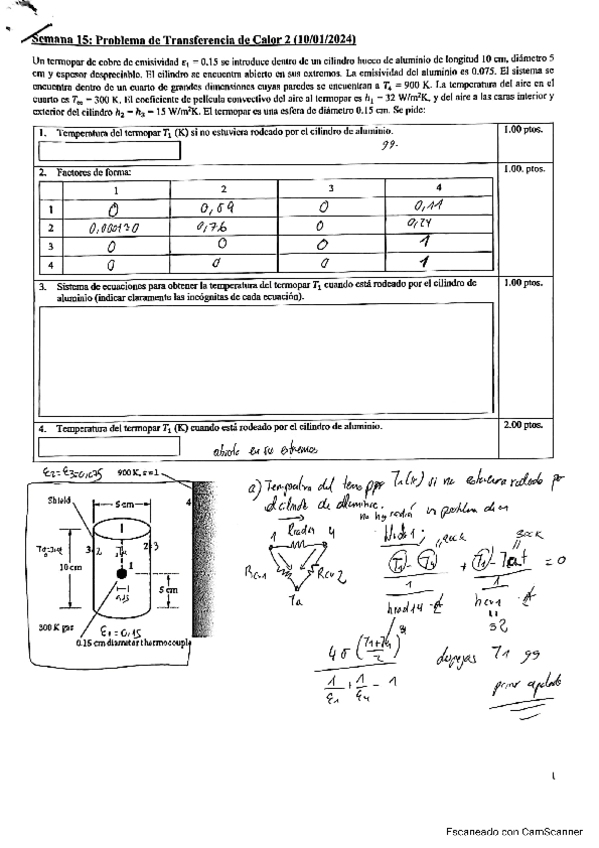 Semana 15: Problema de Transferencia de Calor 2 (10/01/2024)
Un termopar de cobre de emisividad ε₁ = 0.15 se introduce dentro de un cilindro hueco de aluminio de longitud 10 cm, diámetro 5
cm y espesor despreciable. El cilindro se encuentra abierto en sus extremos. La emisividad del aluminio es 0.075. El sistema se
encuentra dentro de un cuarto de grandes dimensiones cuyas paredes se encuentran a T₄ = 900 K. La temperatura del aire en el
cuarto es T∞ = 300 K. El coeficiente de película convectivo del aire al termopar es h₁ = 32 W/m²K, y del aire a las caras interior y
exterior del cilindro h₂ = h₃ = 15 W/m²K. El termopar es una esfera de diámetro 0.15 cm. Se pide:
1. Temperatura del termopar T₁ (K) si no estuviera rodeado por el cilindro de aluminio. 1.00 ptos.
99.
2. Factores de forma: 1.00. ptos.
1 2 3 4
1 0 0,89 0 0,11
2 0,000120 0,76 0 0,24
3 0 0 0 1
4 0 0 0 1
3. Sistema de ecuaciones para obtener la temperatura del termopar T₁ cuando está rodeado por el cilindro de 1.00 ptos.
aluminio (indicar claramente las incógnitas de cada ecuación).
4. Temperatura del termopar T₁ (K) cuando está rodeado por el cilindro de aluminio. 2.00 ptos.
abierto en sus extremos
ε2=ε3=0,075 900 K, ε=1
Shield 5 cm 4
3 2 2 3
10 cm 1 5 cm
300 K gas ε1=0,15
0.15 cm diameter thermocouple
a) Temperatura del termopar T1(K) si no estuviera rodeado por
el cilindro de aluminio.
1 Rrad14 4
Rcv1 Rcv2
Ta
Nodo 1;
T1 - T4 + T1 - Tat = 0
1 1
hrad14·A hcv1·A
32
4σ (T1+T4 / 2)³
1/ε1 + 1/ε4 - 1
despejas T1 99
primer apartado
1
Escaneado con CamScanner